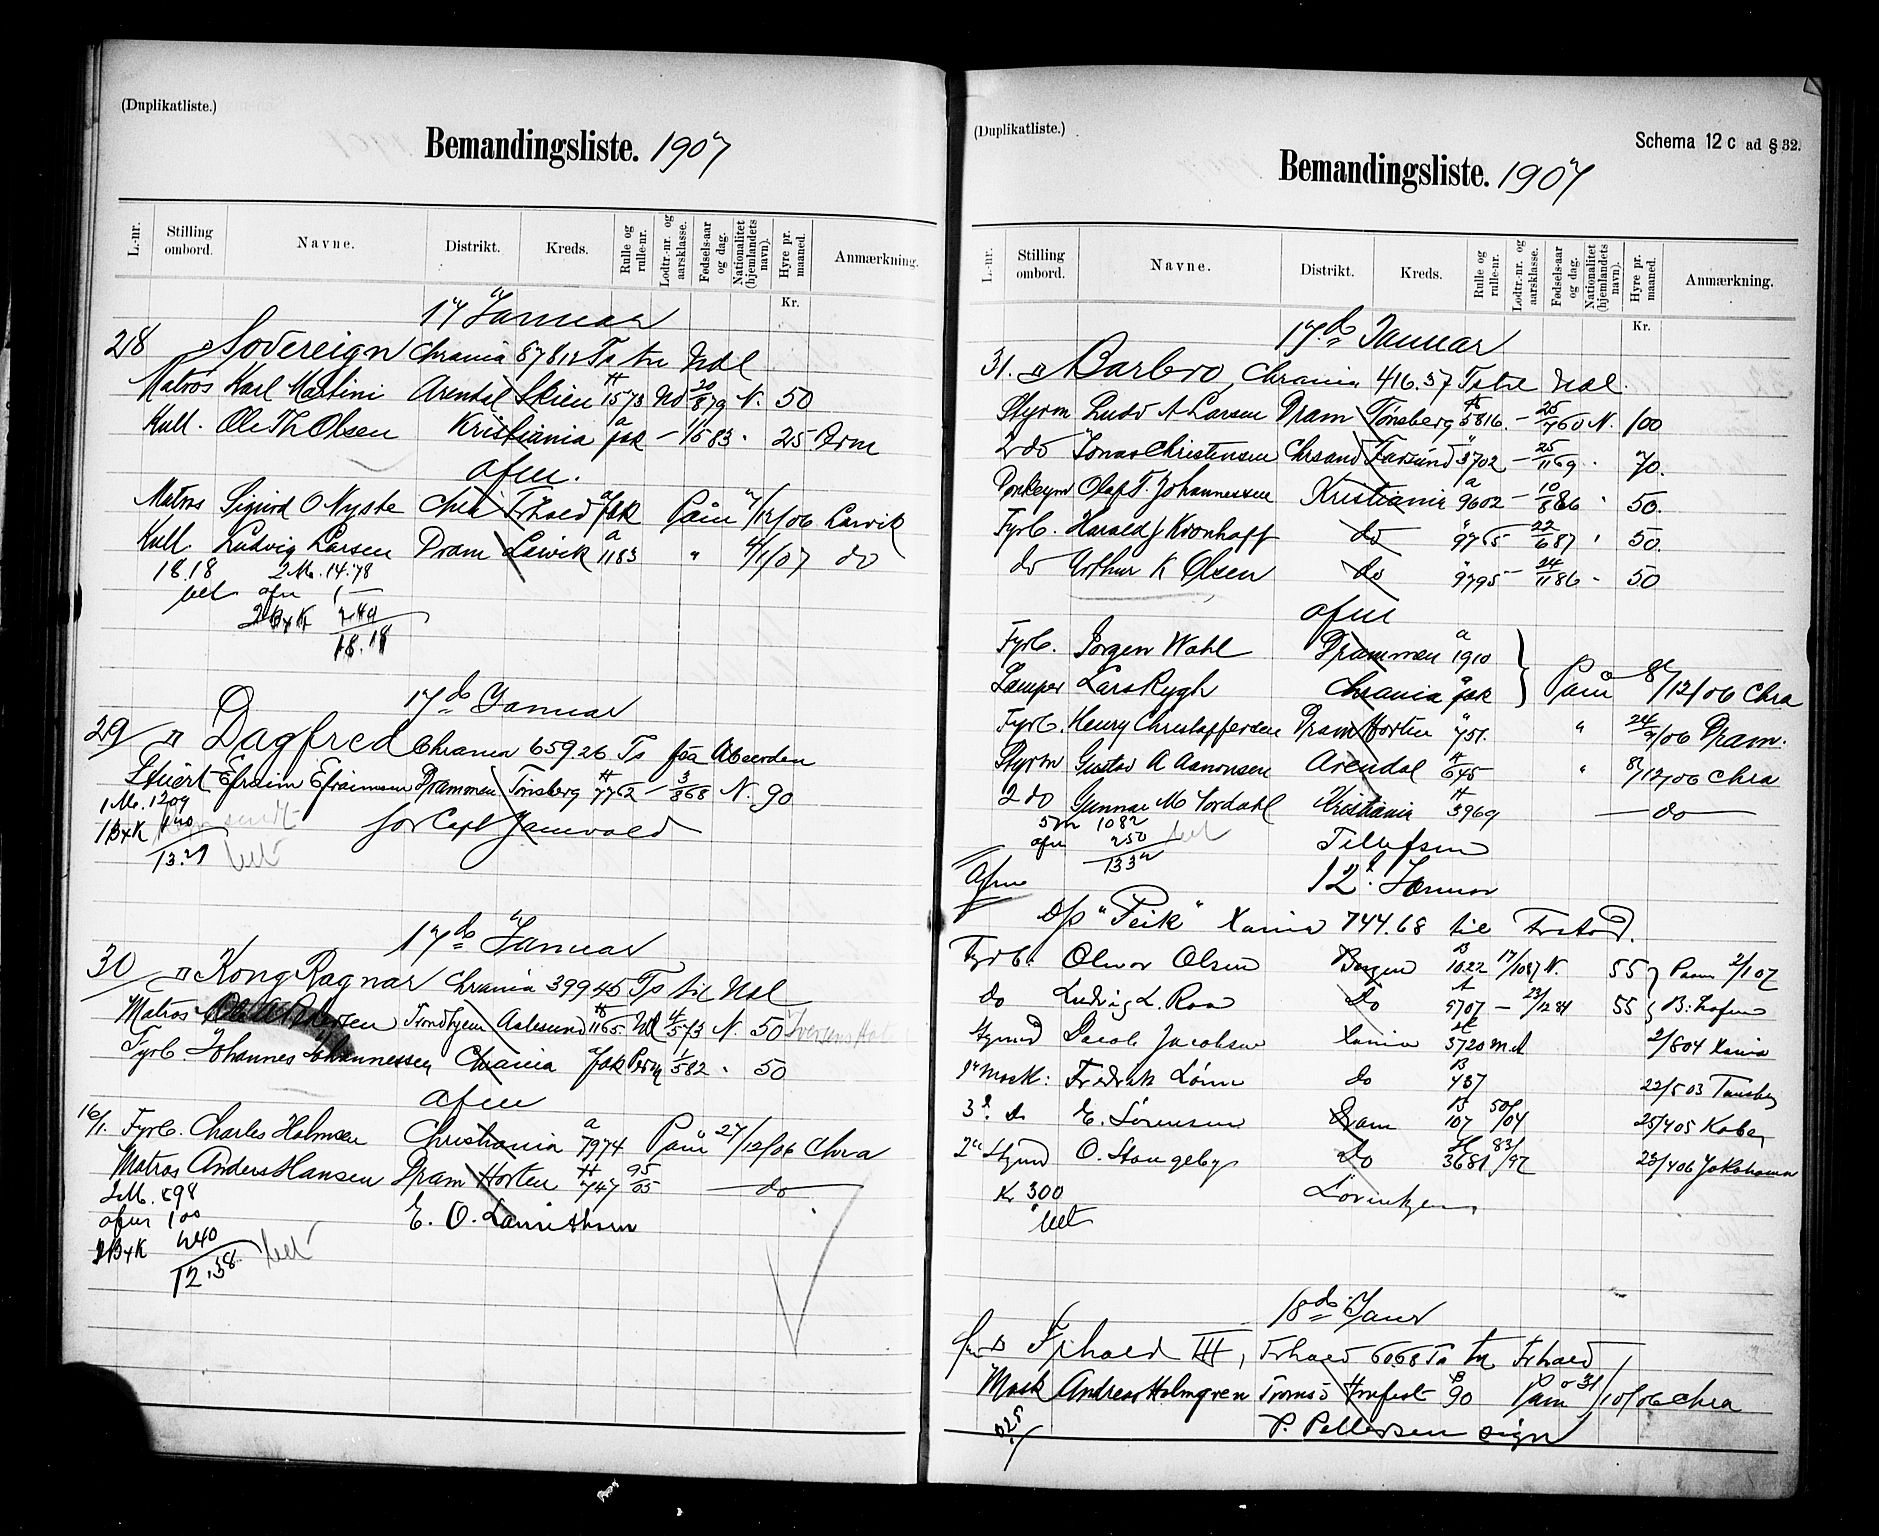 (Duplikatliste.)
Bemandingsliste. 1907
L.-nr. Stilling ombord. Navne. Distrikt. Kreds. Rulle og rulle-nr. Lodtr.-nr. og aarsklasse. Fødsels-aar og dag. Nationalitet (hjemlandets navn). Hyre pr. maaned. Anmærkning.
Kr.
17 Januar
28 Sovereign Chrania 87812 Ts til Ndl
Matros Karl Martini Arendal Skien H 1573 Nd 20/8 79 N. 50
Kull. Ole Th Olsen Kristiania a fsk — 1/5 83 25
afm.
Matros Sigurd O Nyste Chra Frhald a fsk Paam /12/06 Larvik
Kull. Ludvig Larsen Dram Larvik a 1183 " 4/1/07 do
18.18 2 M. 14.78
bet afm 1 —
2BxK 240
18.18
17de Januar
29 Dagfred Chrania 659.26 Ts fra Aberdeen
Stuert Efraim Efraimsen Drammen Tønsberg H 7762 — 3/8 68 N. 90
1 M. 1209
for Capt Jamvold
1BxK
bet
17de Januar
30 Kong Ragnar Chrania 399.45 Ts til Ndl
Matros Trondhjem Aalesund H 1165 Nd 4/5 73 N. 50
Fyrb. Johannes Johannessen Chrania a fsk Perm 1/5 82 " 50
afm
16/1. Fyrb. Charles Holmsen Christiania a 7974 Paam 27/12/06 Chra
Matros Anders Hansen Dram Horten H 747 95/05 — do
2 M. 898
afm 100
E. O. Lauritzsen
2BxK 240
12.38 bet
(Duplikatliste.)
Schema 12 c ad § 32.
Bemandingsliste. 1907
L.-nr. Stilling ombord. Navne. Distrikt. Kreds. Rulle og rulle-nr. Lodtr.-nr. og aarsklasse. Fødsels-aar og dag. Nationalitet (hjemlandets navn). Hyre pr. maaned. Anmærkning.
Kr.
17de Januar
31. Barbro, Chrania 416.57 Ts til Ndl.
Styrm Ludv A Larsen Dram Tønsberg H 5816. — 25/7 60 N. 100
2 do Jonas Christensen Chrsand Farsund " 3702 — 25/11 69 " 70.
Donkeym Olaf T. Johannessen Kristiania a 9602 — 10/8 86 " 50.
Fyrb. Harald J Kronhoff do " 9765 22/6 87 " 50.
do Arthur K Olsen do " 9795 — 24/11 86 " 50
afm
Fyrb. Jørgen Wahl Drammen a 1910
Lemper Lars Rygh Chrania a fsk Paam 8/12/06 Chra
Fyrb. Henry Christoffersen Dram Horten " 751. " 24/9/06 Dram.
Styrm Gustav A Aanonsen Arendal H 645 " 8/12/06 Chra
2 do Gunnar M Nordahl Kristiania H 3969 — do —
5 M 1082
afm 250 bet
Tellefsen
Afm
12t. Januar
D/s "Peik" Xania 744.68 til Frstad.
Fyrb. Oluor Olsen Bergen B 1022 17/10 87 N. 55 Paam 2/1 07
do Ludvig L. Roa Do A 5707 — 23/12 84 55
Styrmd Jacob Jacobsen Xania H 3720 2/8 04 Xania
1ste Mask: Fredrik Do B 437 22/5 03 Tønsbg
3d. Do E. Sørensen Dram B 107 50/04 25/4 05 Kobe
2n Styrmd O. Stangeby Do H 3681 83/97 23/4 06 Jokohama
Kr 300
bet
18de Januar
Frhald III, Frhald 60.68 Ts til Frhald
Mask Andreas Holmgren Tromsø Hmfest B 90 Paam 31/10/06 Chra
P. Pettersen sign